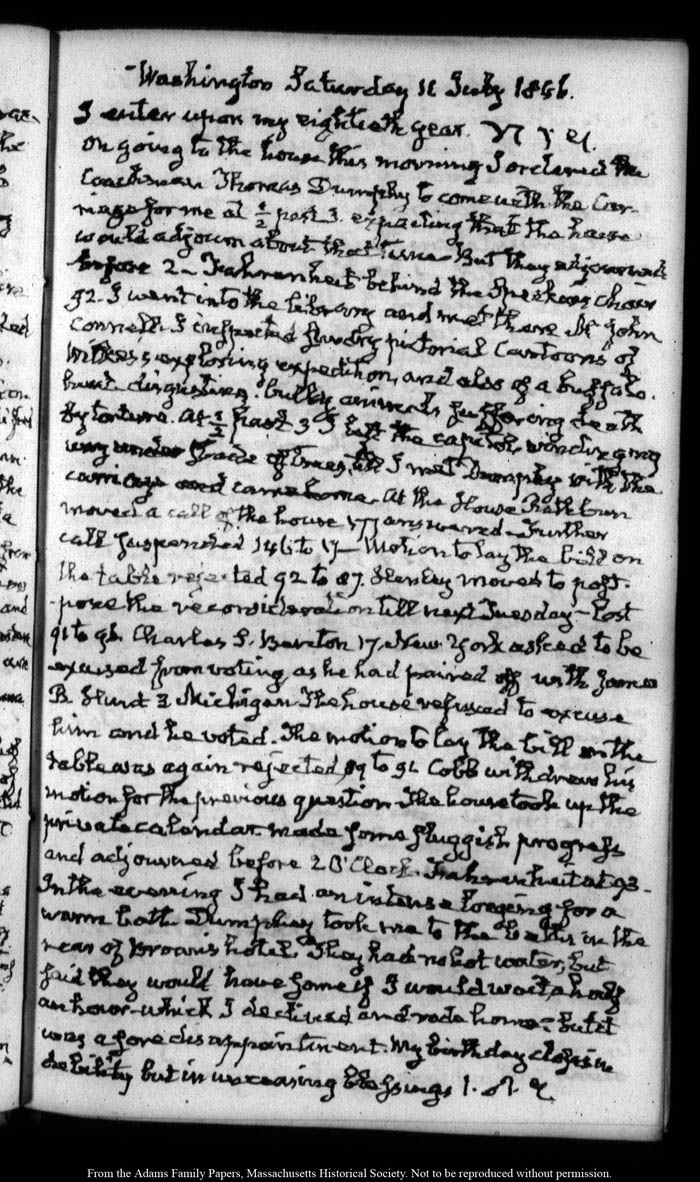 Washington Saturday 11 July 1846.
I enter upon my eightieth year.
On going to the house this morning I ordered the
Coachman Thomas Dumphy to come with the Car-
riage for me at ½ past 3. expecting that the house
would adjourn about that time. But they adjourned
before 2 - Fahrenheit behind the Speakers Chair
92. I went into the library and met there Mr John
Connell. I inspected sundry pictorial Cartoons of
Wilkes's exploring expedition, and also of a buffalo
hunt. disgusting. bulky animals suffering death
by torture. At ½ past 3 I left the capitol, wending my
way under shade of trees, till I met Dumphy with the
carriage and came home. At the House Rathbun
moved a call of the house 177 answered - Further
call suspended 146 to 17 - Motion to lay the bill on
the table rejected 92 to 87. Stanley moved to post-
pone the reconsideration till next Tuesday - lost
91 to 96. Charles S. Benton 17. New York asked to be
excused from voting, as he had paired off with James
B. Hunt 3 Michigan. The house refused to excuse
him and he voted. The motion to lay the bill on the
table was again rejected 89 to 91. Cobb withdrew his
motion for the previous question. The house took up the
private calendar. made some sluggish progress
and adjourned before 2 O'Clock. Fahrenheit at 93 -
In the evening I had an intense longing for a
warm bath. Dumphy took me to the baths in the
rear of Brown's hotel. They had no hot water, but
said they would have some if I would wait a half
an hour - which I declined and rode home: but it
was a sore disappointment. My birthday closes in
debility but in unceasing blessings
From the Adams Family Papers, Massachusetts Historical Society. Not to be reproduced without permission.